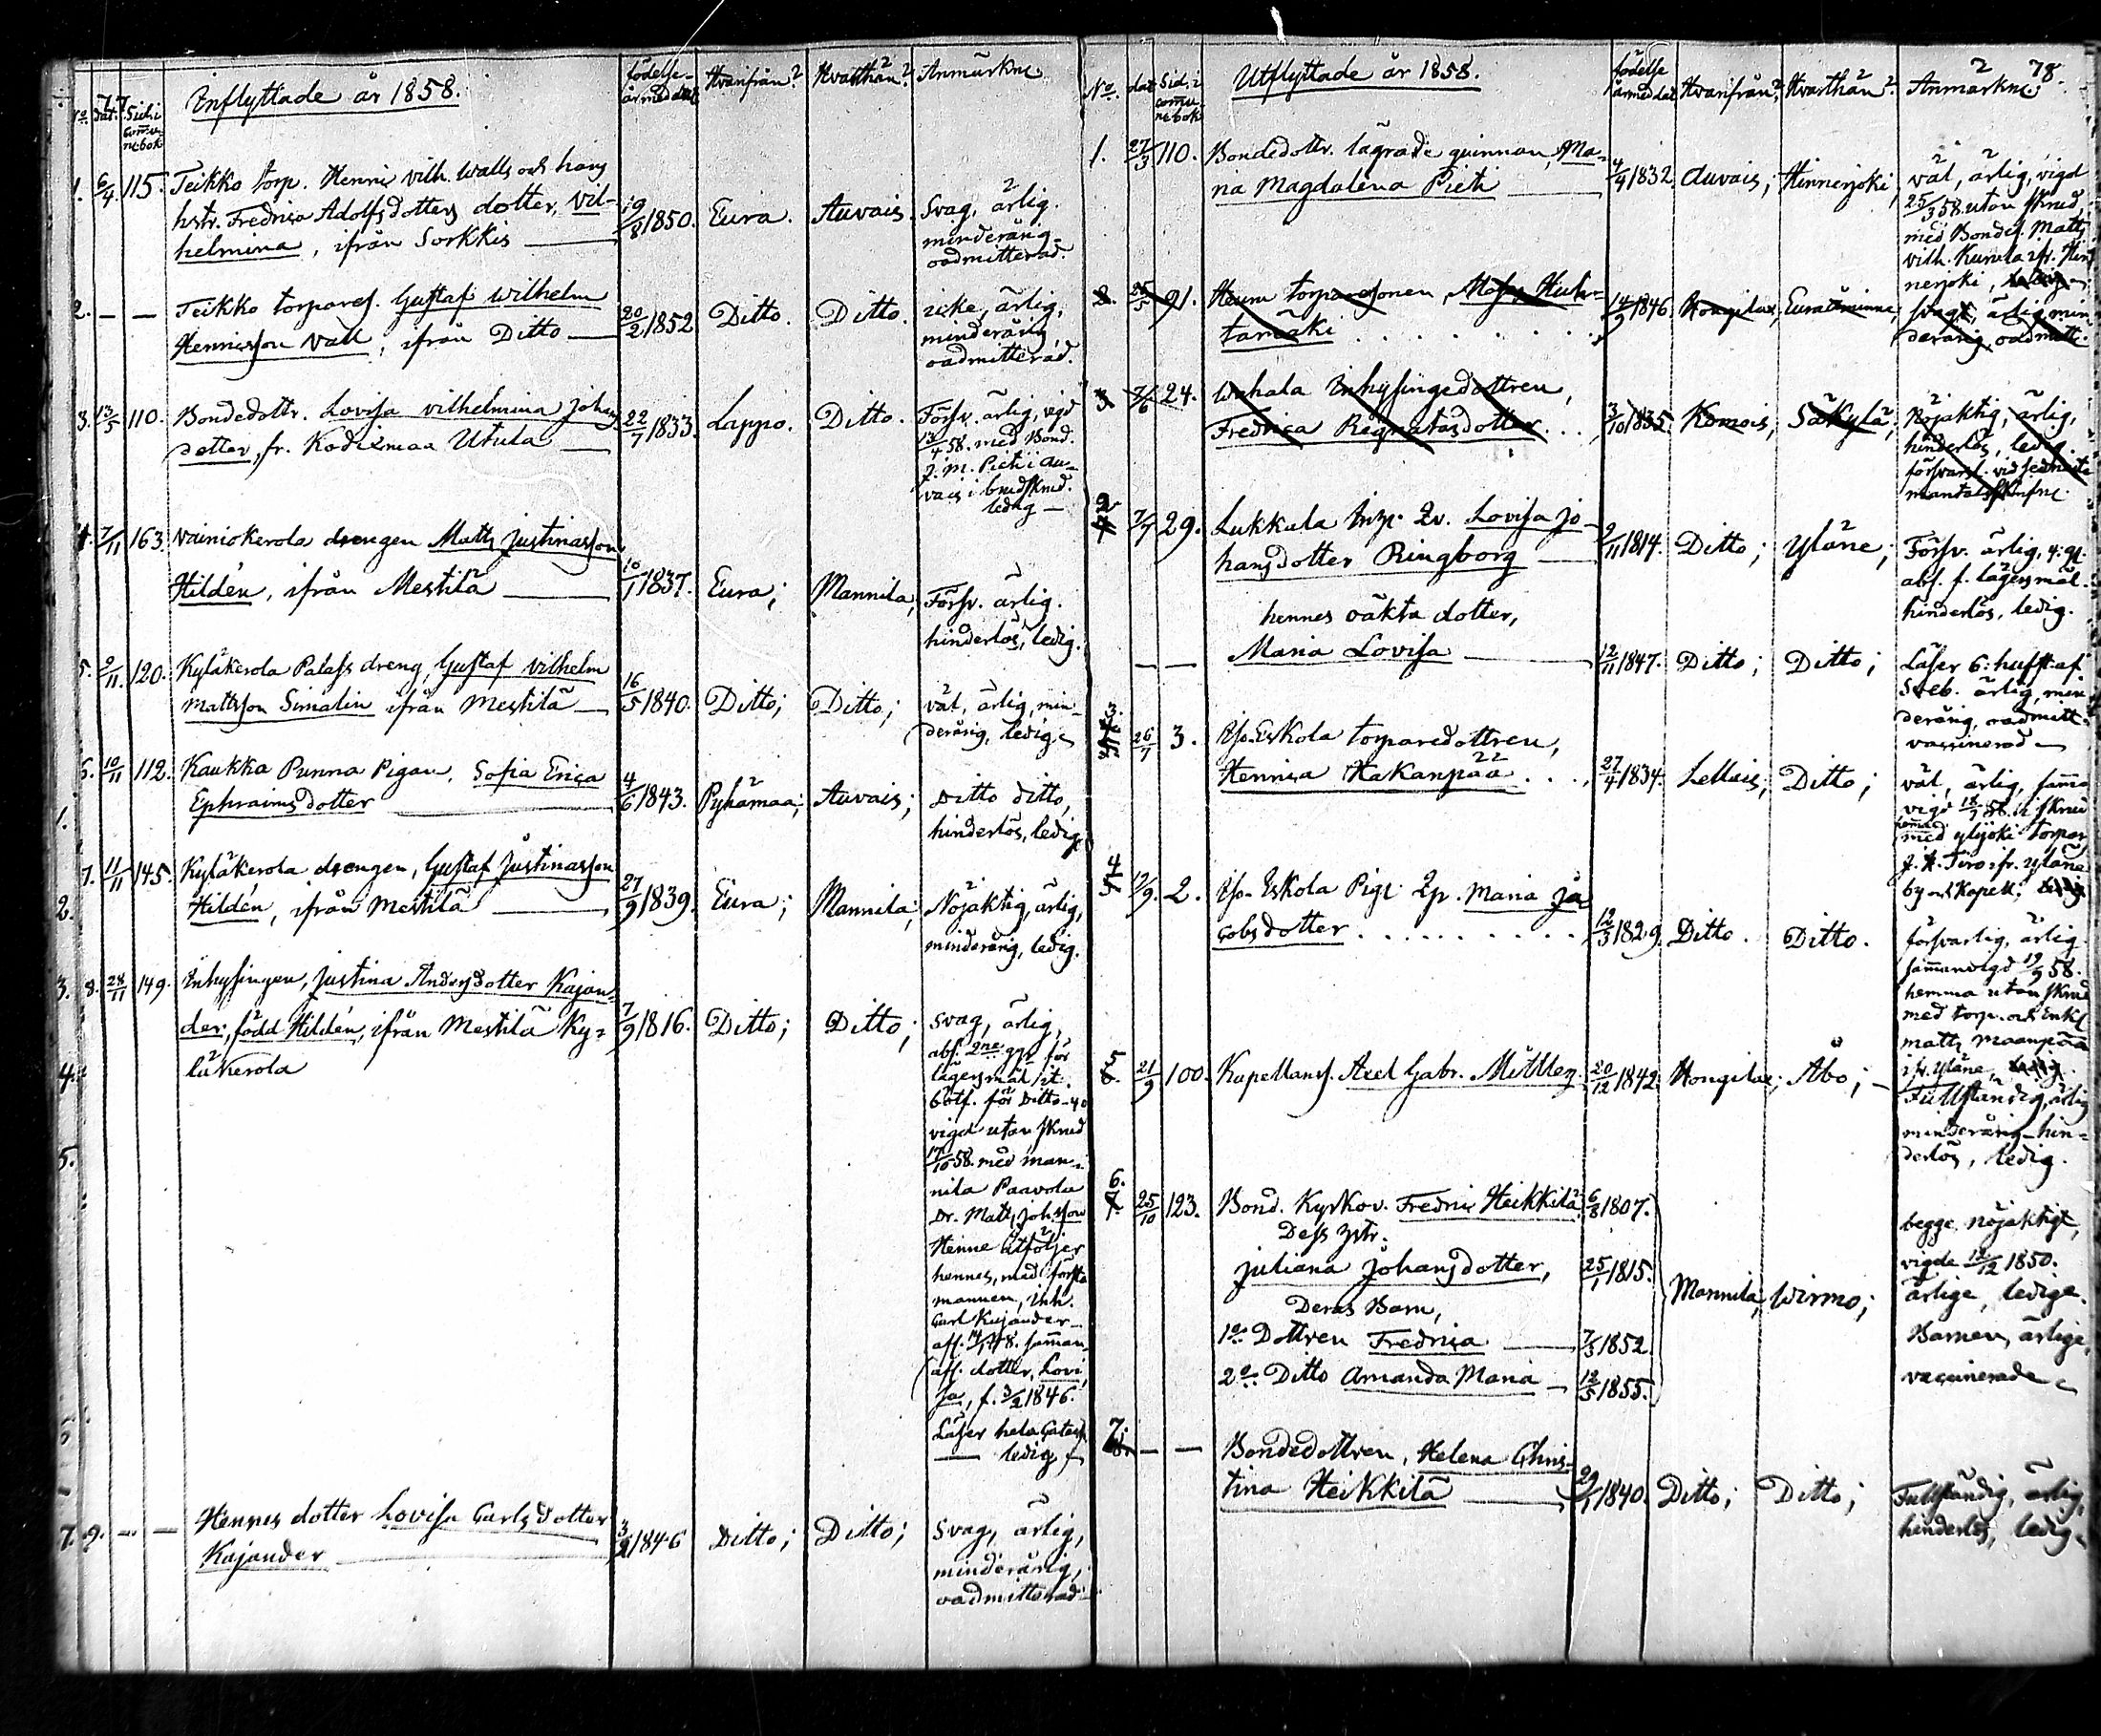 77
No. dat. Sid. i comu. ne bok
Inflyttade år 1858.
födelse-år med dat. Hvarifrån? Hvarthän? Anmärkn.
1. 6/4 115. Teikko torp. Henric vilh. Walls och hans
hstr. Fredrica Adolfsdotters dotter, Vil-
helmina, ifrån Sorkkis 19/8 1850. Eura. Auvais. Svag, ärlig.
minderårig
oadmitterad.
2. — — Teikko torpares. Gustaf Wilhelm
Henricsson Vall, ifrån Ditto 20/2 1852 Ditto. Ditto. icke, ärlig,
minderårig,
oadmitterad.
3. 13/5 110. Bondedottr. Lovisa vilhelmina Johans
dotter, fr. Kodixmaa Utula 22/7 1833. Lappo. Ditto. Försv. ärlig, vigd
13/4 58. med Bond.
J. M. Pieti i Au-
vais i brudskrud.
ledig —
4. 7/11 163. Vainiokerola drengen Matts Justinasson
Hildén, ifrån Mestilä 10/1 1837. Eura; Mannila; Försv. ärlig.
hinderlös, ledig.
5. 9/11. 120. Kyläkerola Palass dreng, Gustaf vilhelm
mattsson Simalin ifrån Mestilä 16/5 1840. Ditto; Ditto; väl, ärlig, min-
derårig, ledig
6. 10/11 112. Kaukka Punna Pigan, Sofia Erica
Ephraimsdotter 4/6 1843. Pyhämaa; Auvais; Ditto ditto,
hinderlös, ledig
7. 11/11 145. Kyläkerola drengen, Gustaf Justinasson
Hildén, ifrån Mestilä 27/9 1839. Eura; Mannila; Nöjaktig, ärlig,
minderårig, ledig.
8. 28/11 149. Inhysingen, Justina Andersdotter Kajan-
der, född Hildén, ifrån Mestilä Ky-
läkerola 7/9 1816. Ditto; Ditto; Svag, ärlig,
abs. 2ne ggr för
lägersmål,
bötf. för Ditto
vigd utan skrud
17/10 58. med Man-
nila Paavola
Dr. Matts Johsson
Henne åtföljer
hennes, med första
mannen, inh.
Carl Kajander
afl. dotter, Lovi
sa, f. 3/2 1846.
Läser hela Catech.
— ledig
9. — — Hennes dotter Lovisa Carlsdotter
Kajander 3/2 1846 Ditto; Ditto; Svag, ärlig,
minderårig,
oadmitterad
1.
2.
3.
4.
5.
7.
78.
No. dat Sid. i comu. ne bok
Utflyttade år 1858.
födelse år med dat Hvarifrån? Hvarthän? Anmärkn.
1. 27/3 110. Bondedottr. lägrade quinnan, Ma-
ria Magdalena Pieti 4/4 1832. Auvais; Hinnerjoki; väl, ärlig, vigd
25/3 58. utan skrud,
med Bondes. Matts
vilh. Kunila ifr. Hin-
nerjoki,
2. 25/5 91. torparesonen,
tamäki 14/9 1846. Hongilax; Euraåminne; svagt, ärlig, min
derårig, oadmitt.
3 7/6 24. Wahala Inhysingedottren,
Fredrica Regnatasdotter 3/10 1835. Komois; Säkylä; Nöjaktig, ärlig,
hinderlös, ledig
försvarsl. vid sednaste
mantalsskrifne.
2 4 7/7 29. Lukkala Inhys. Qv. Lovisa Jo-
hansdotter Ringborg 9/11 1814. Ditto; Yläne; Försv. ärlig, 4. g.
abs. f. lägersmål.
hinderlös, ledig.
hennes oäkta dotter,
— — Maria Lovisa 12/11 1847. Ditto; Ditto; Läser 6: hufst. af
Sveb. ärlig, min
derårig, oadmitt
vaccinerad
3. 26/7 3. Iso-Eskola torparedottren,
Henrica Hakanpää 27/4 1834. Lellais; Ditto; väl, ärlig,
vigd 18/7 58. i skrud
hemma
med ylijoki torpar
J. H. Tiro ifr. Yläne
by och Kapell.
4 5 12/9. 2. Iso-Eskola Pig. Qv. Maria Ja
cobsdotter 12/3 1829. Ditto. Ditto. försvarlig, ärlig
sammanvigd 19/9 58.
hemma utan skrud
med torp. och Enkl.
Matts Maanpää
ifr. Yläne, ledig.
5 6. 21/9 100. Kapellans. Axel Gabr. Möller 20/12 1842. Hongilax; Åbo; Fullständig, ärlig
minderårig hin-
derlös, ledig.
6. 7. 25/10 123. Bond. Kyrkov. Fredric Heikkilä 6/8 1807.
Dess hstr.
Juliana Johansdotter, 25/1 1815.
Deras Barn,
1o. Dottren Fredrica 7/3 1852
2o. Ditto Amanda Maria 12/5 1855. Mannila; Wirmo;
begge nöjaktigt,
vigde 12/12 1850.
ärlige, ledige.
Barnen, ärlige,
vaccinerade
7. 8. — — Bondedottren, Helena Chris-
tina Heikkilä 29/1 1840. Ditto; Ditto; Fullständig, ärlig,
hinderlös, ledig.